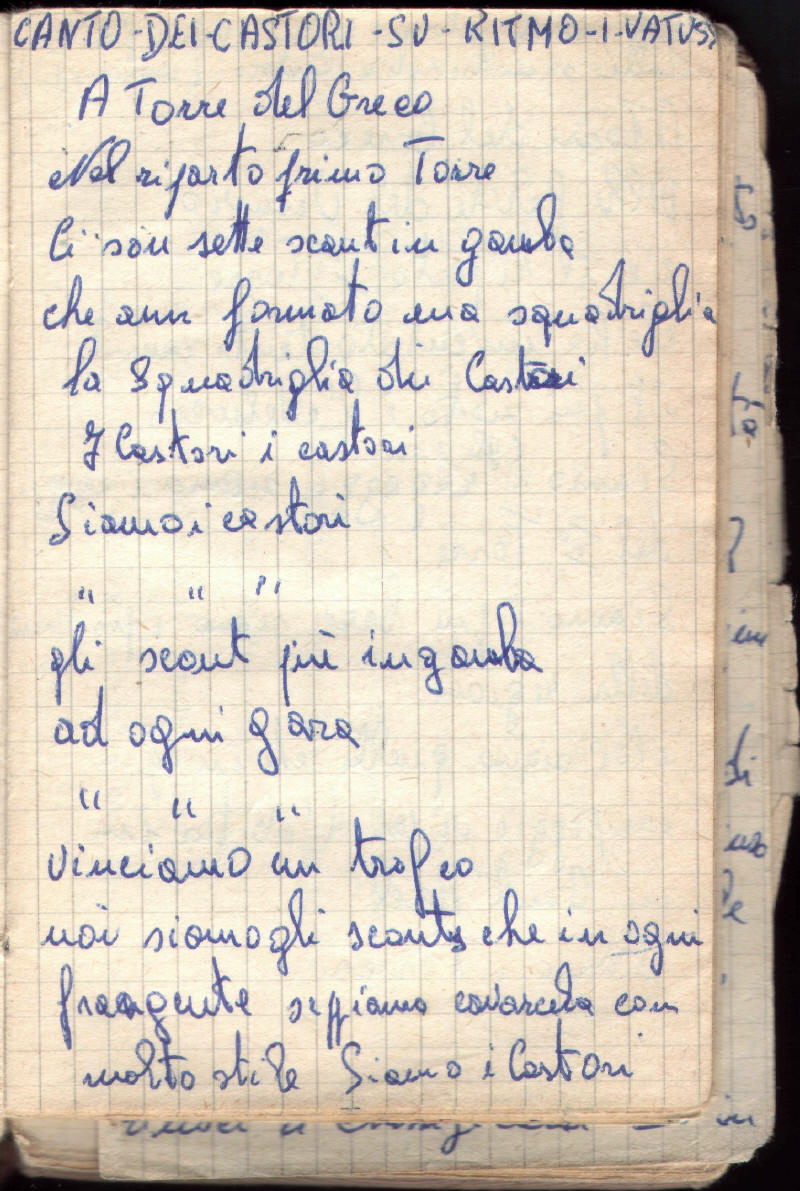 CANTO-DEI-CASTORI-SU-RITMO-I-VATUSSI
A Torre del Greco
Nel riparto primo Torre
Ci son sette scout in gamba
che ann formato una squadriglia
la Squadriglia dei Castori
I Castori i castori
Siamo i castori
" " "
gli scout più in gamba
ad ogni gara
" " "
vinciamo un trofeo
noi siamo gli scouts che in ogni
frangente sappiamo cavarcela con
molto stile Siamo i Castori